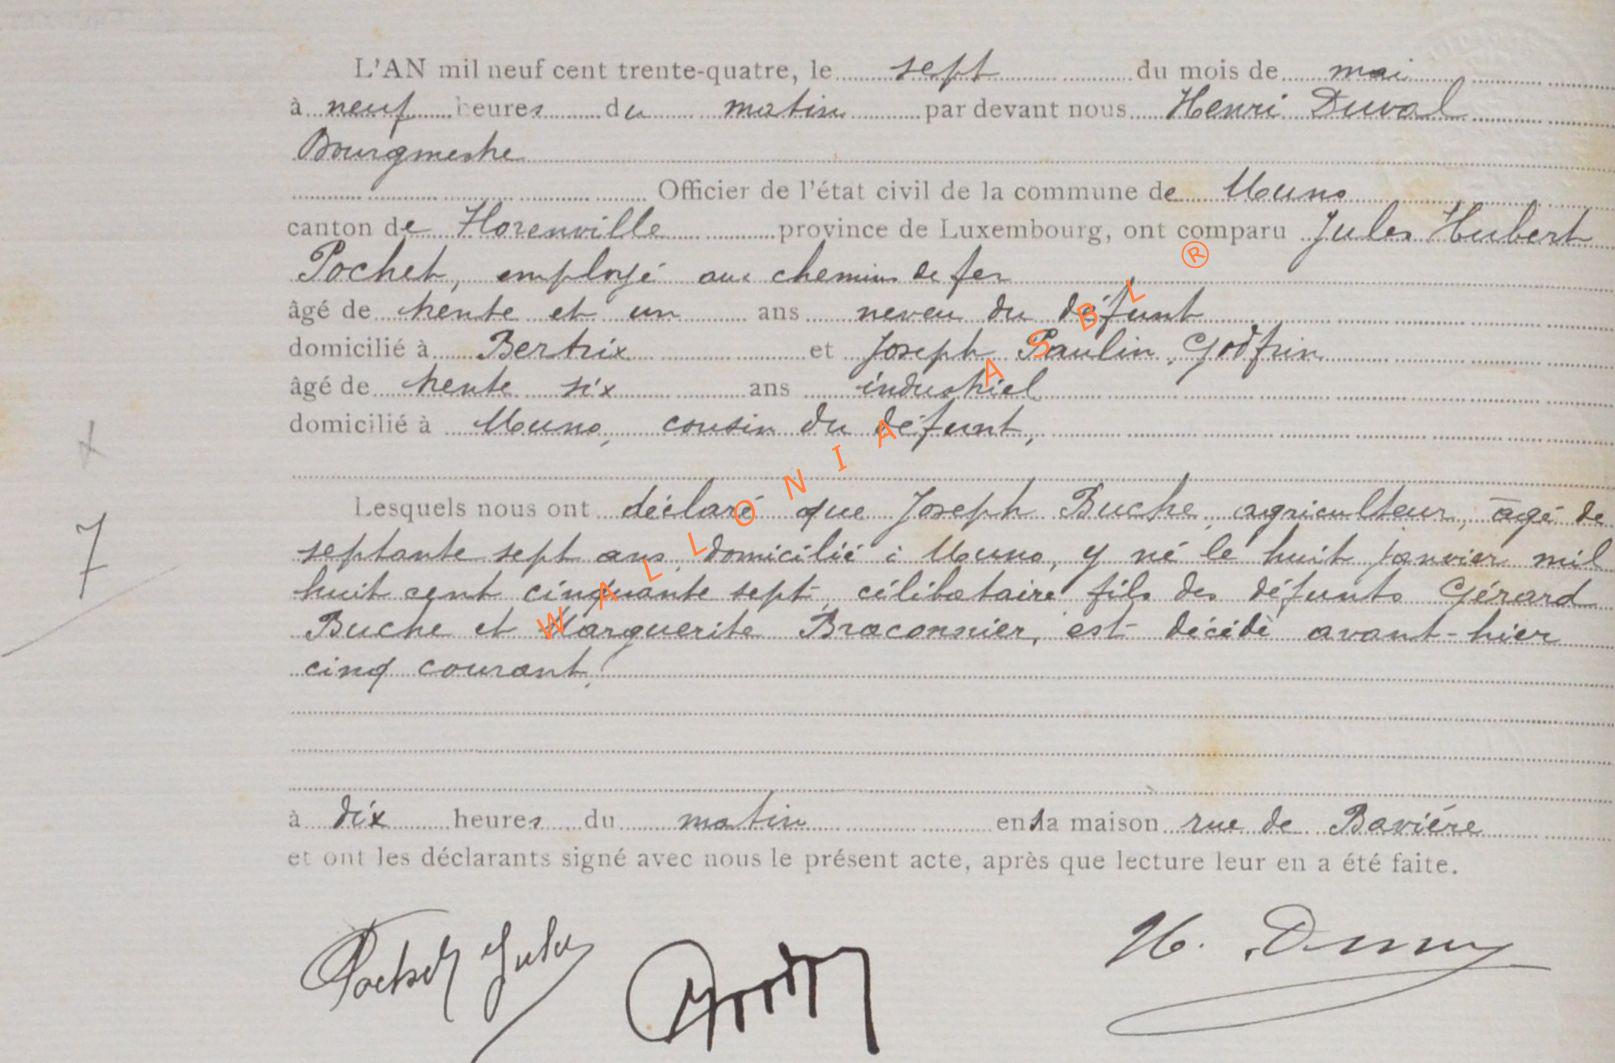 L'AN mil neuf cent trente-quatre, le sept du mois de mai
à neuf heures du matin par devant nous Henri Duval
Bourgmestre
Officier de l'état civil de la commune de Muno
canton de Florenville province de Luxembourg, ont comparu Jules Hubert
Pochet, employé aux chemins de fer
âgé de trente et un ans neveu du défunt
domicilié à Bertrix et Joseph Paulin Godfrin
âgé de trente six ans industriel
domicilié à Muno, cousin du défunt,
Lesquels nous ont déclaré que Joseph Buche, agriculteur, âgé de
septante sept ans, domicilié à Muno, y né le huit janvier mil
huit cent cinquante sept, célibataire fils des défunts Gérard
Buche et Marguerite Braconnier, est décédé avant-hier
cinq courant,
à dix heures du matin en sa maison rue de Bavière
et ont les déclarants signé avec nous le présent acte, après que lecture leur en a été faite.
7
Pochet Jules
H. Duval
WALLONIA ASBL ®